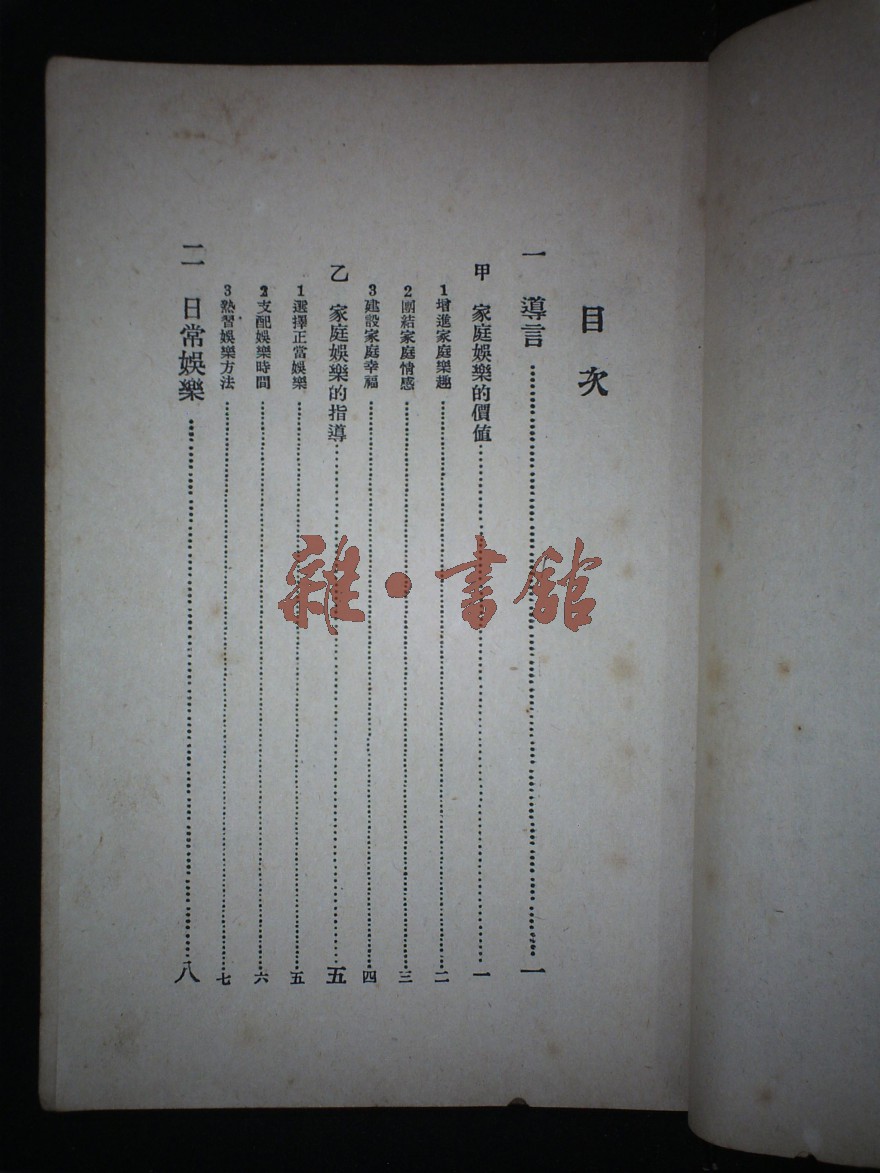 目次
一　導言……一
甲　家庭娛樂的價值……一
1增進家庭樂趣……二
2團結家庭情感……三
3建設家庭幸福……四
乙　家庭娛樂的指導……五
1選擇正當娛樂……五
2支配娛樂時間……六
3熟習娛樂方法……七
二　日常娛樂……八
雜·書館